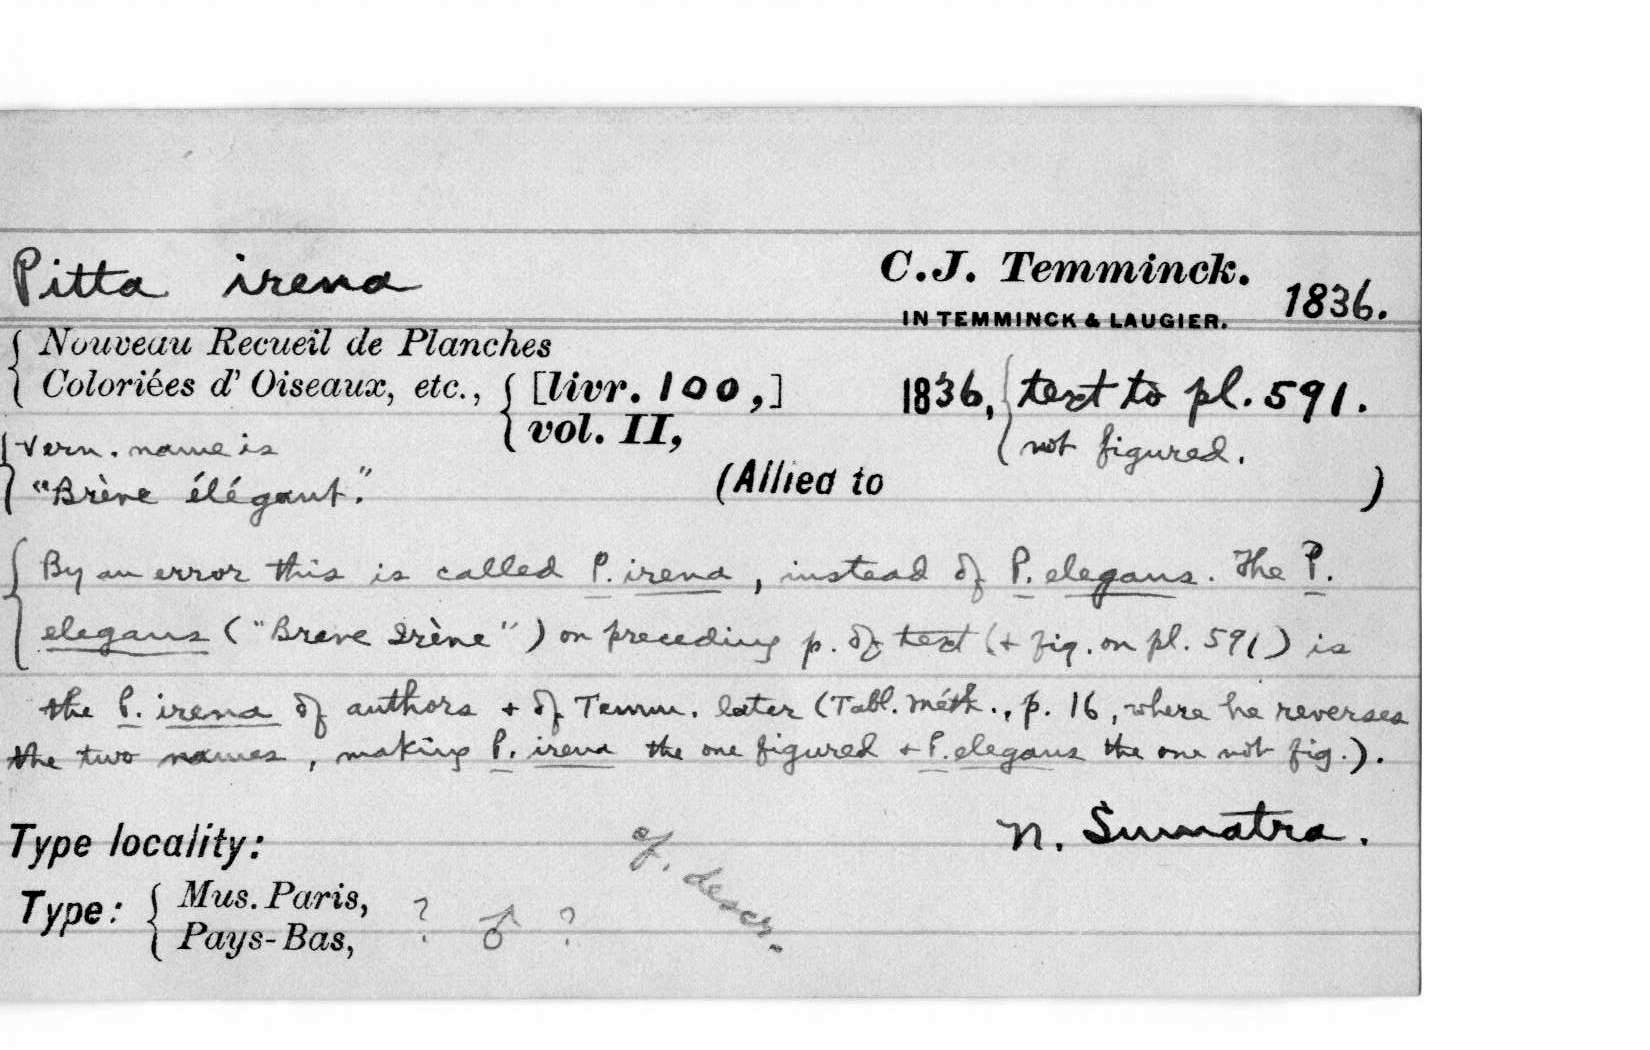 Pitta irena
C.J. Temminck.
IN TEMMINCK & LAUGIER.
1836.
Nouveau Recueil de Planches
Coloriées d' Oiseaux, etc., [livr. 100,] 1836, text to pl. 591.
vol. II, not figured.
Vern. name is
"Brève élégant."
(Allied to )
By an error this is called P. irena, instead of P. elegans. The P.
elegans ("Breve Irène") on preceding p. of text (+ fig. on pl. 591) is
the P. irena of authors + of Temm. later (Tabl. Méth., p. 16, where he reverses
the two names, making P. irena the one figured + P. elegans the one not fig.).
Type locality: N. Sumatra.
Type: Mus. Paris,
Pays-Bas, ? ♂ ?
cf. descr.